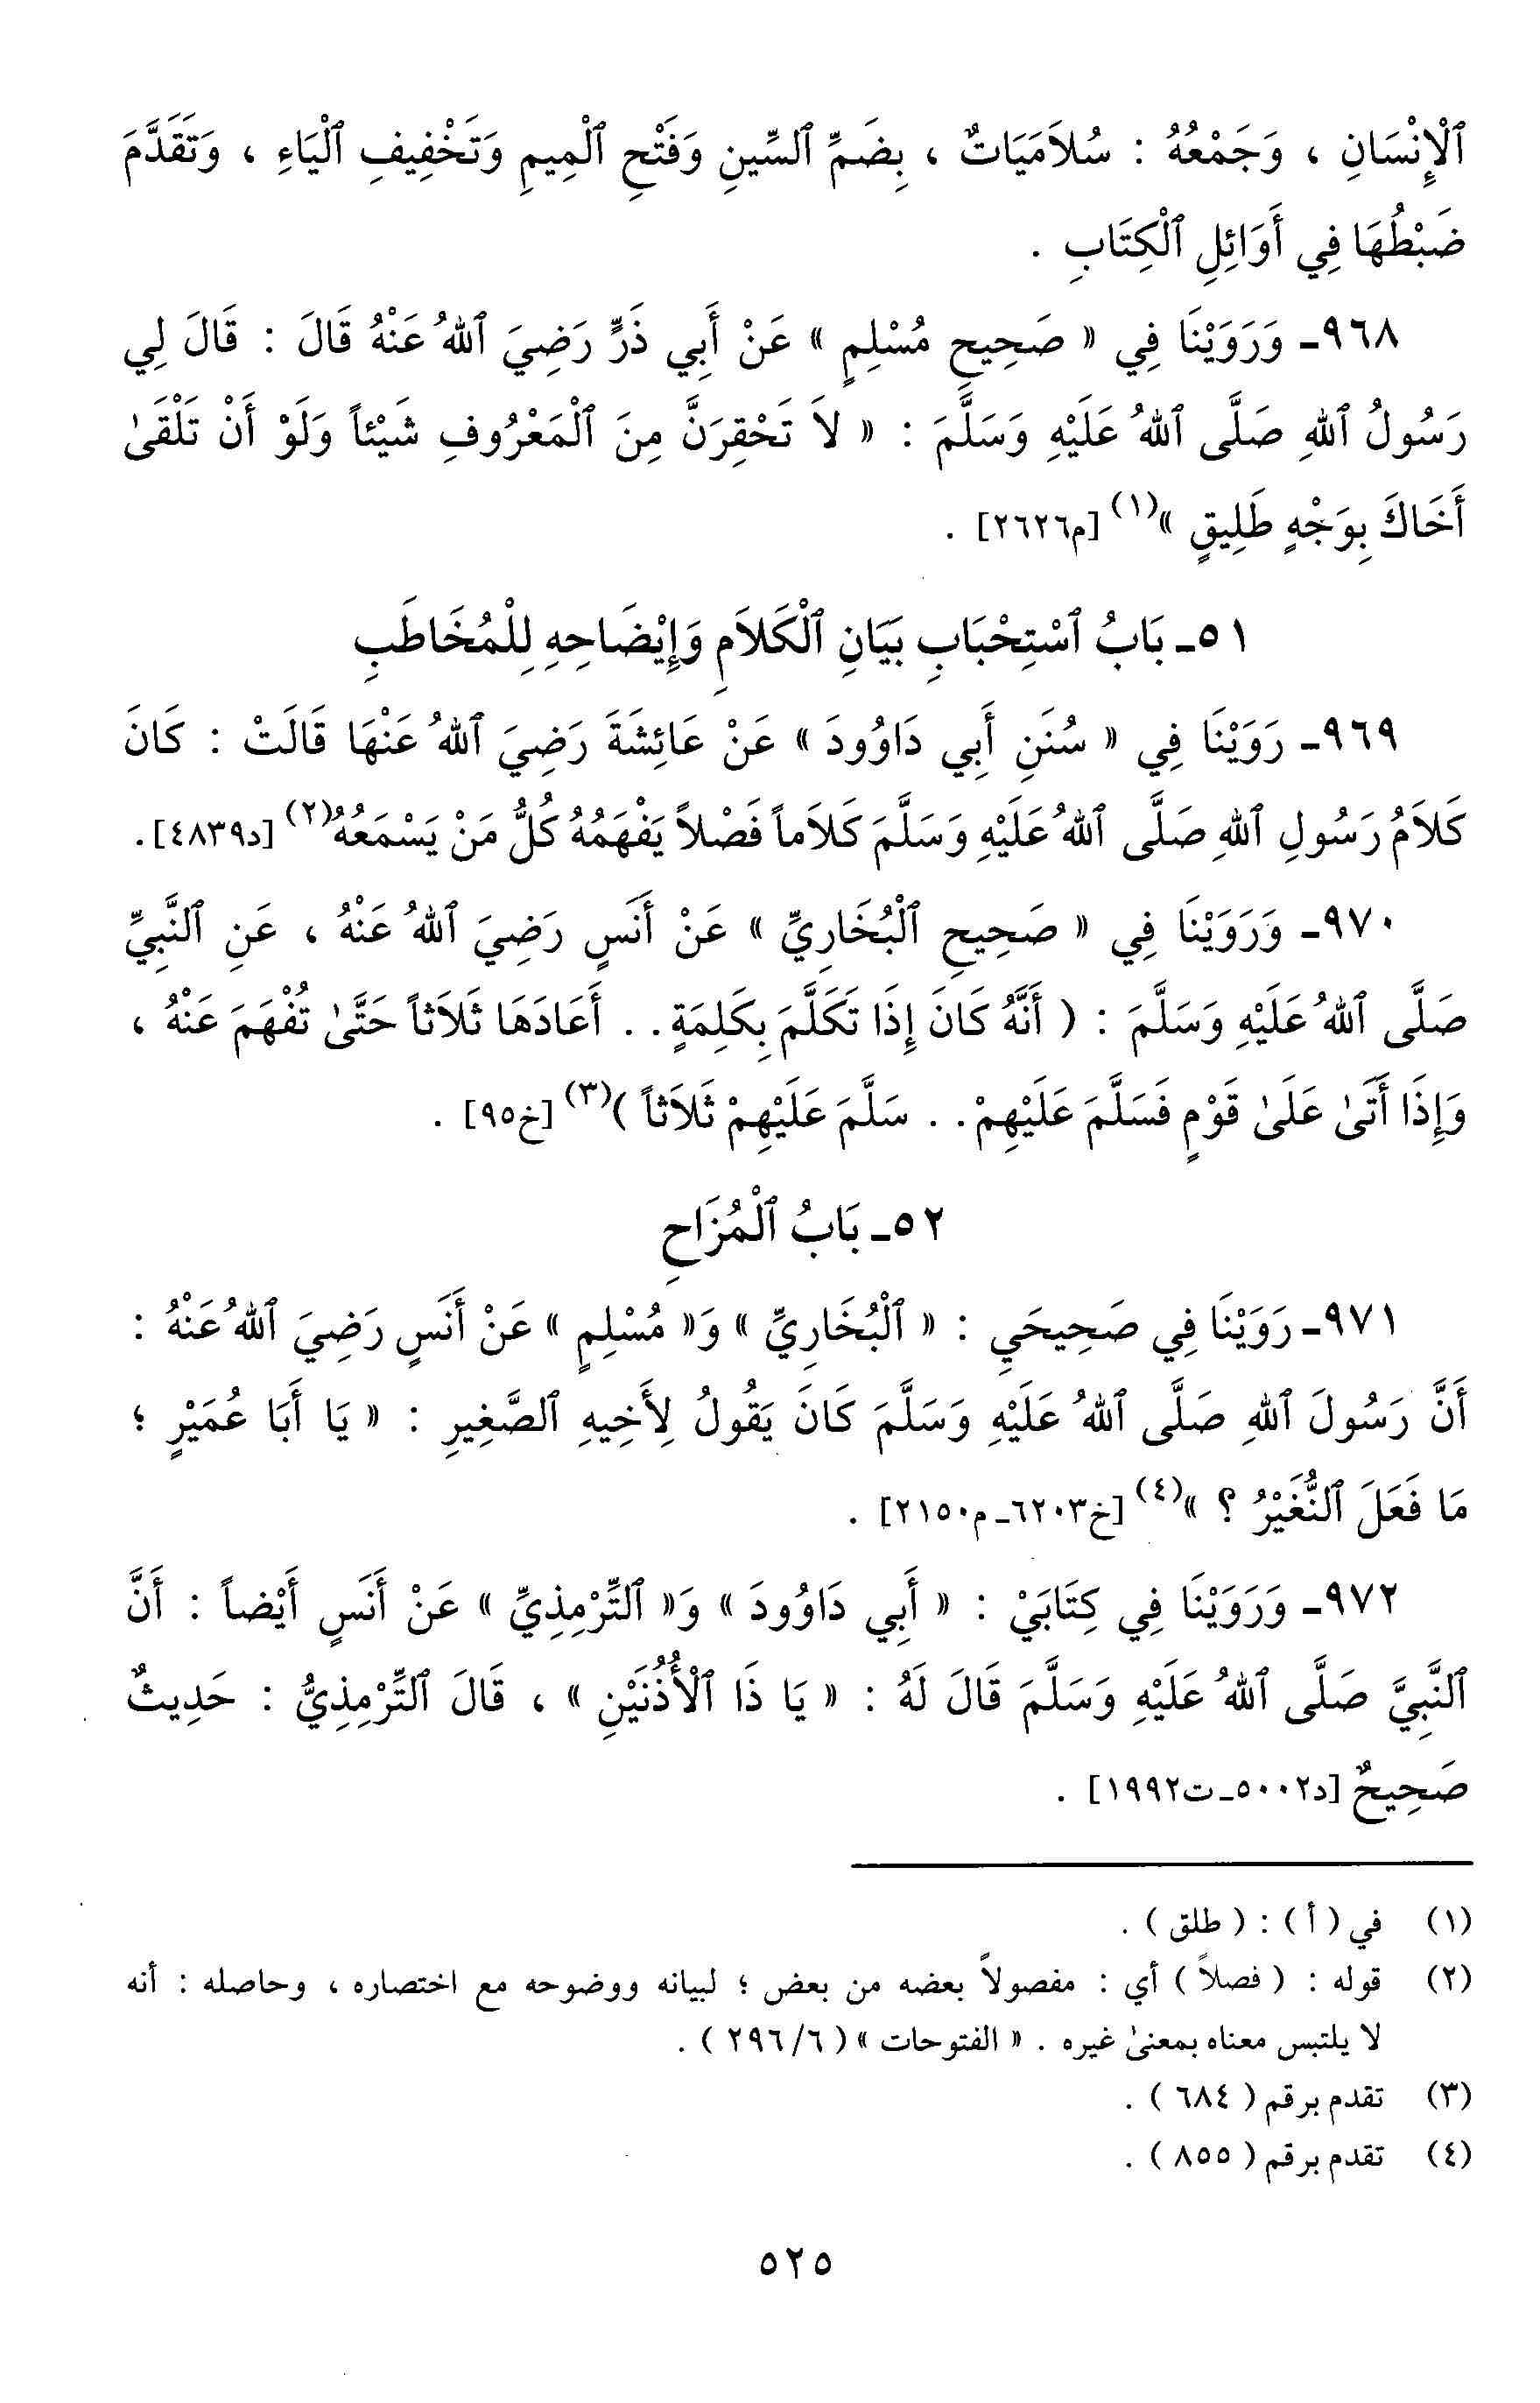 ٱلْإِنْسَانِ ، وَجَمْعُهُ : سُلاَمَيَاتٌ ، بِضَمِّ ٱلسِّينِ وَفَتْحِ ٱلْمِيمِ وَتَخْفِيفِ ٱلْيَاءِ ، وَتَقَدَّمَ
ضَبْطُهَا فِي أَوَائِلِ ٱلْكِتَابِ .
٩٦٨ـ وَرَوَيْنَا فِي « صَحِيحِ مُسْلِمٍ » عَنْ أَبِي ذَرٍّ رَضِيَ ٱللهُ عَنْهُ قَالَ : قَالَ لِي
رَسُولُ ٱللهِ صَلَّى ٱللهُ عَلَيْهِ وَسَلَّمَ : « لاَ تَحْقِرَنَّ مِنَ ٱلْمَعْرُوفِ شَيْئاً وَلَوْ أَنْ تَلْقَىٰ
أَخَاكَ بِوَجْهٍ طَلِيقٍ »(١) [م٢٦٢٦] .
٥١ـ بَابُ ٱسْتِحْبَابِ بَيَانِ ٱلْكَلاَمِ وَإِيْضَاحِهِ لِلْمُخَاطَبِ
٩٦٩ـ رَوَيْنَا فِي « سُنَنِ أَبِي دَاوُودَ » عَنْ عَائِشَةَ رَضِيَ ٱللهُ عَنْهَا قَالَتْ : كَانَ
كَلاَمُ رَسُولِ ٱللهِ صَلَّى ٱللهُ عَلَيْهِ وَسَلَّمَ كَلاَماً فَصْلاً يَفْهَمُهُ كُلُّ مَنْ يَسْمَعُهُ(٢) [د٤٨٣٩] .
٩٧٠ـ وَرَوَيْنَا فِي « صَحِيحِ ٱلْبُخَارِيِّ » عَنْ أَنَسٍ رَضِيَ ٱللهُ عَنْهُ ، عَنِ ٱلنَّبِيِّ
صَلَّى ٱللهُ عَلَيْهِ وَسَلَّمَ : ( أَنَّهُ كَانَ إِذَا تَكَلَّمَ بِكَلِمَةٍ . . أَعَادَهَا ثَلاَثاً حَتَّىٰ تُفْهَمَ عَنْهُ ،
وَإِذَا أَتَىٰ عَلَىٰ قَوْمٍ فَسَلَّمَ عَلَيْهِمْ . . سَلَّمَ عَلَيْهِمْ ثَلاَثاً )(٣) [خ٩٥] .
٥٢ـ بَابُ ٱلْمُزَاحِ
٩٧١ـ رَوَيْنَا فِي صَحِيحَيِ : « ٱلْبُخَارِيِّ » وَ« مُسْلِمٍ » عَنْ أَنَسٍ رَضِيَ ٱللهُ عَنْهُ :
أَنَّ رَسُولَ ٱللهِ صَلَّى ٱللهُ عَلَيْهِ وَسَلَّمَ كَانَ يَقُولُ لِأَخِيهِ ٱلصَّغِيرِ : « يَا أَبَا عُمَيْرٍ ؛
مَا فَعَلَ ٱلنُّغَيْرُ ؟ »(٤) [خ٦٢٠٣ـ م٢١٥٠] .
٩٧٢ـ وَرَوَيْنَا فِي كِتَابَيْ : « أَبِي دَاوُودَ » وَ« ٱلتِّرْمِذِيِّ » عَنْ أَنَسٍ أَيْضاً : أَنَّ
ٱلنَّبِيَّ صَلَّى ٱللهُ عَلَيْهِ وَسَلَّمَ قَالَ لَهُ : « يَا ذَا ٱلْأُذُنَيْنِ » ، قَالَ ٱلتِّرْمِذِيُّ : حَدِيثٌ
صَحِيحٌ [د٥٠٠٢ـ ت١٩٩٢] .
(١) في ( أ ) : ( طلق ) .
(٢) قوله : ( فصلاً ) أي : مفصولاً بعضه من بعض ؛ لبيانه ووضوحه مع اختصاره ، وحاصله : أنه
لا يلتبس معناه بمعنىٰ غيره . « الفتوحات » ( ٦/ ٢٩٦ ) .
(٣) تقدم برقم ( ٦٨٤ ) .
(٤) تقدم برقم ( ٨٥٥ ) .
٥٢٥